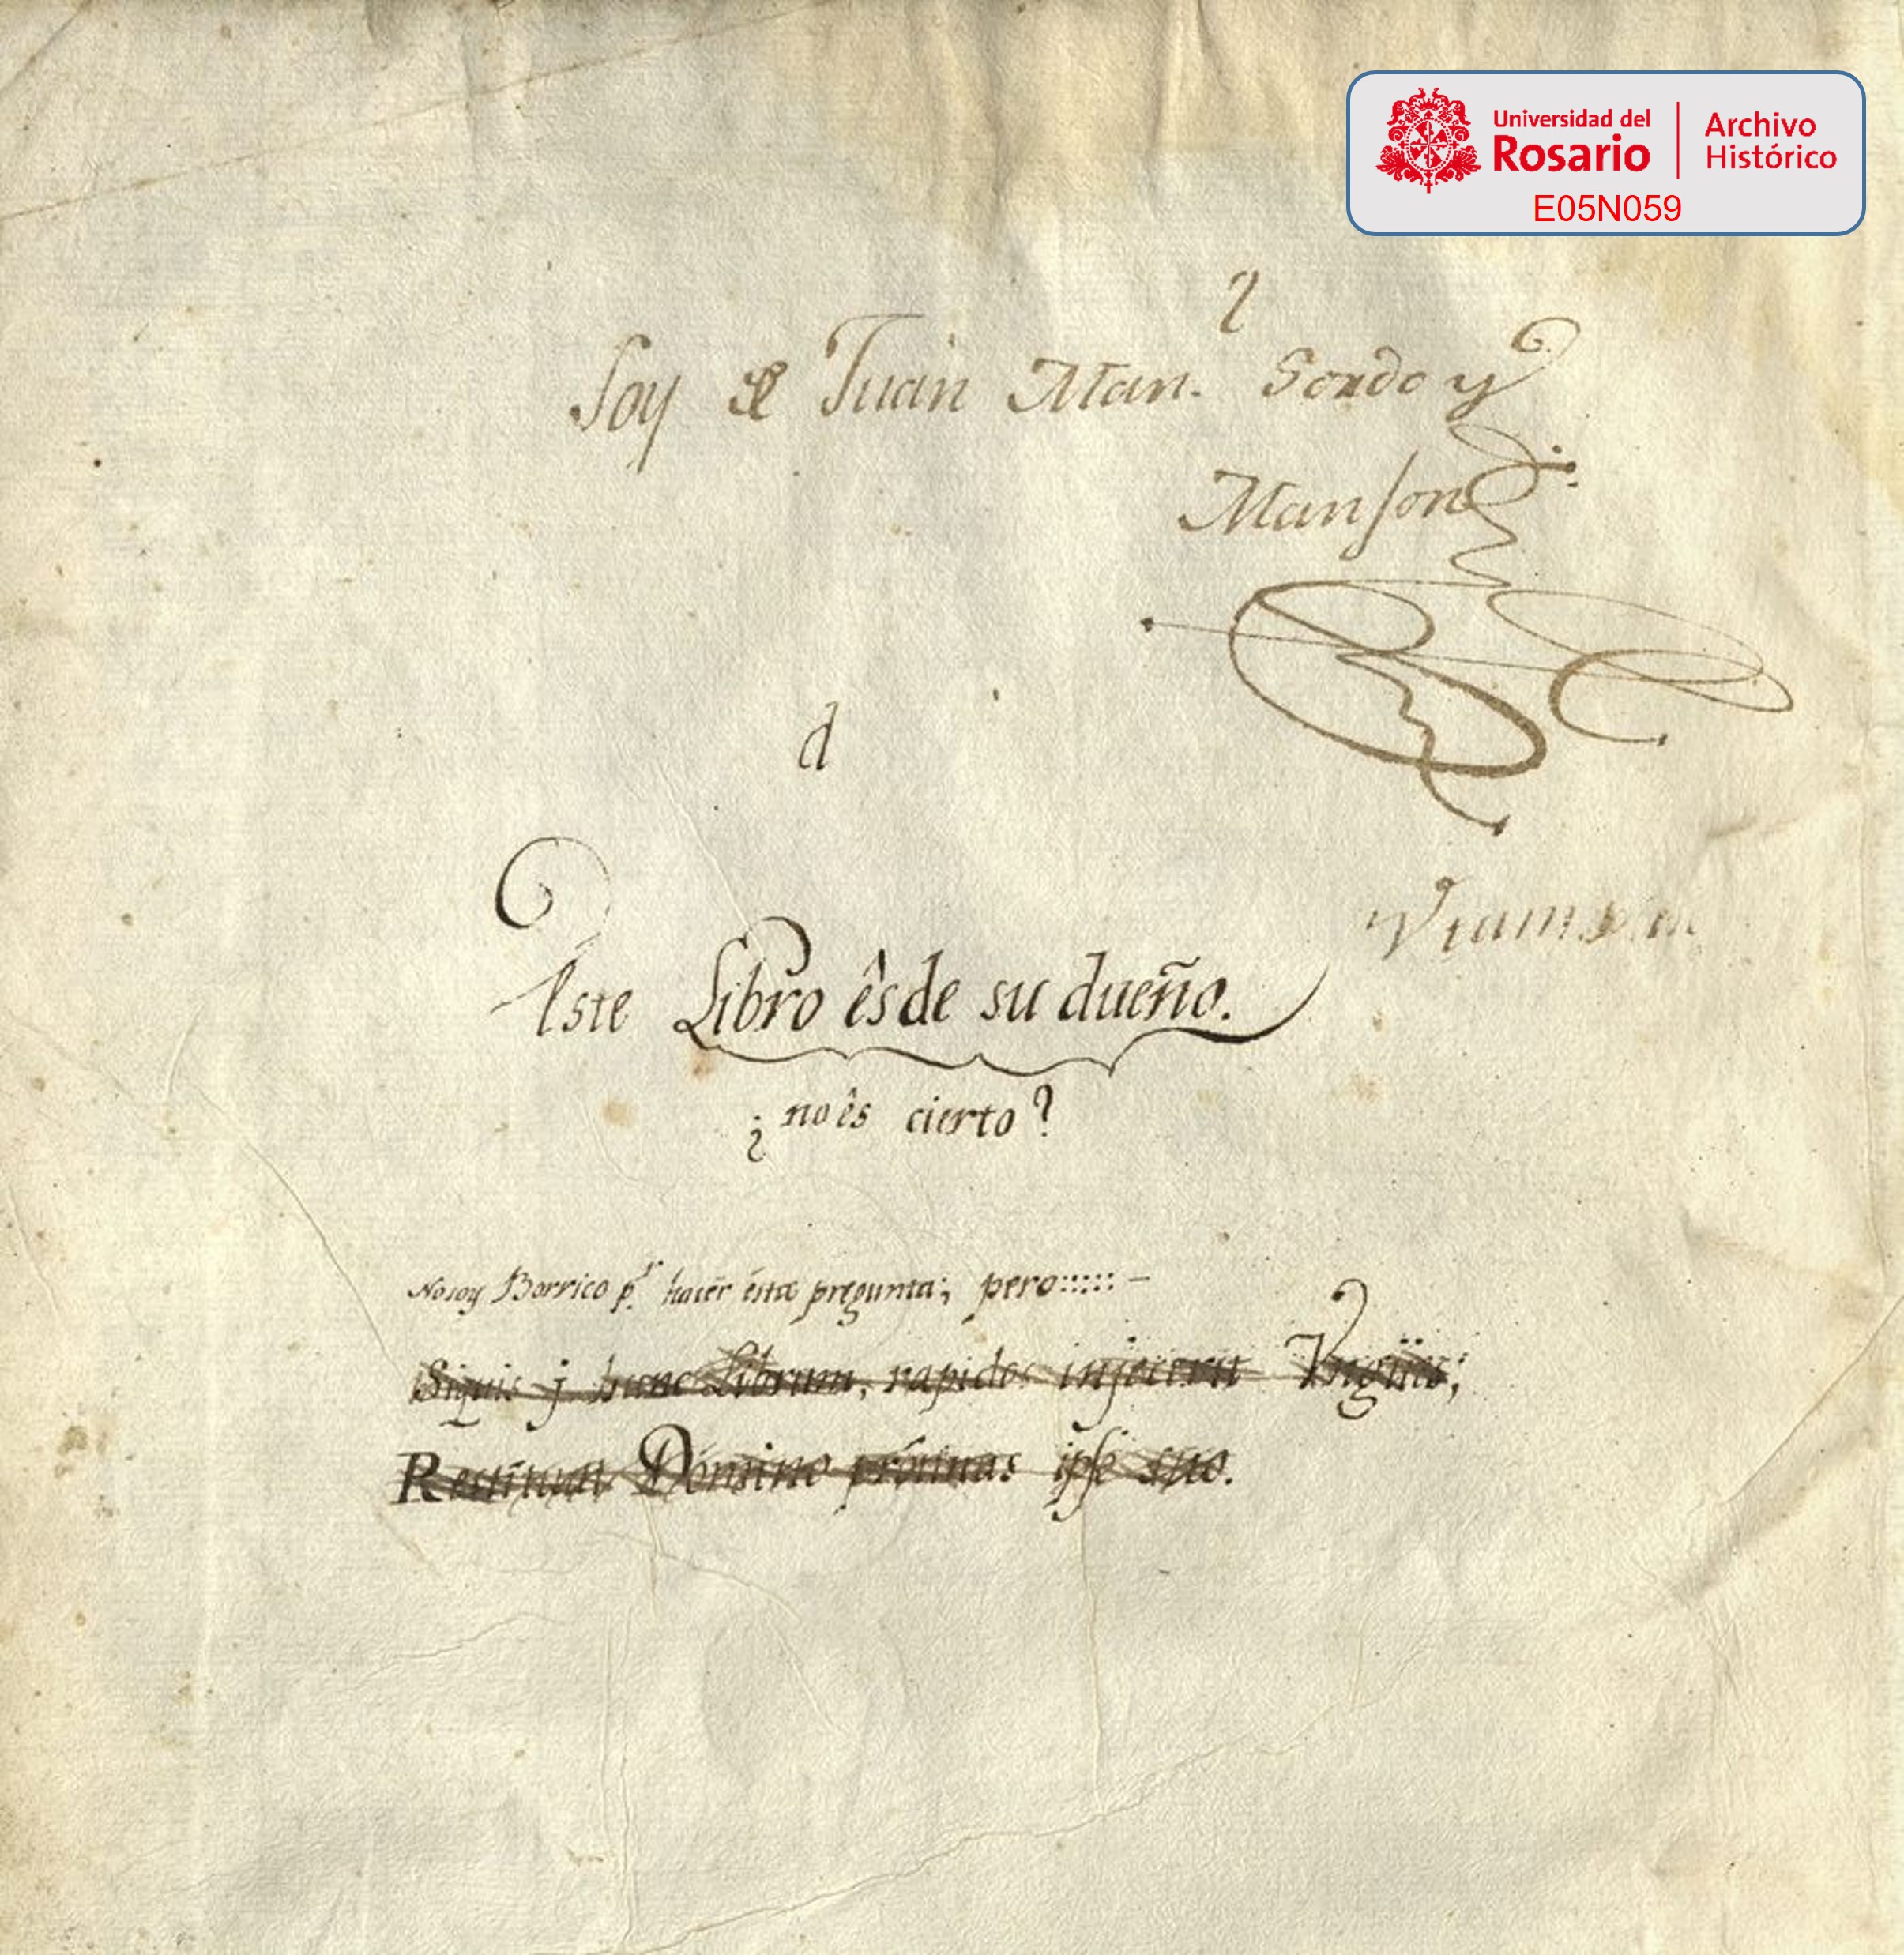 Universidad del Rosario | Archivo Histórico
E05N059
Soy de Juan Man.l Sordo y
Manson
d
Este Libro ês de su dueño.
¿no ês cierto?
No soy Borrico p.r hacer ésta pregunta; pero:::::: –
Siquis j hunc Librum, rapidos injecerit Vngües;
Restituat Domino protinus ipse suo.